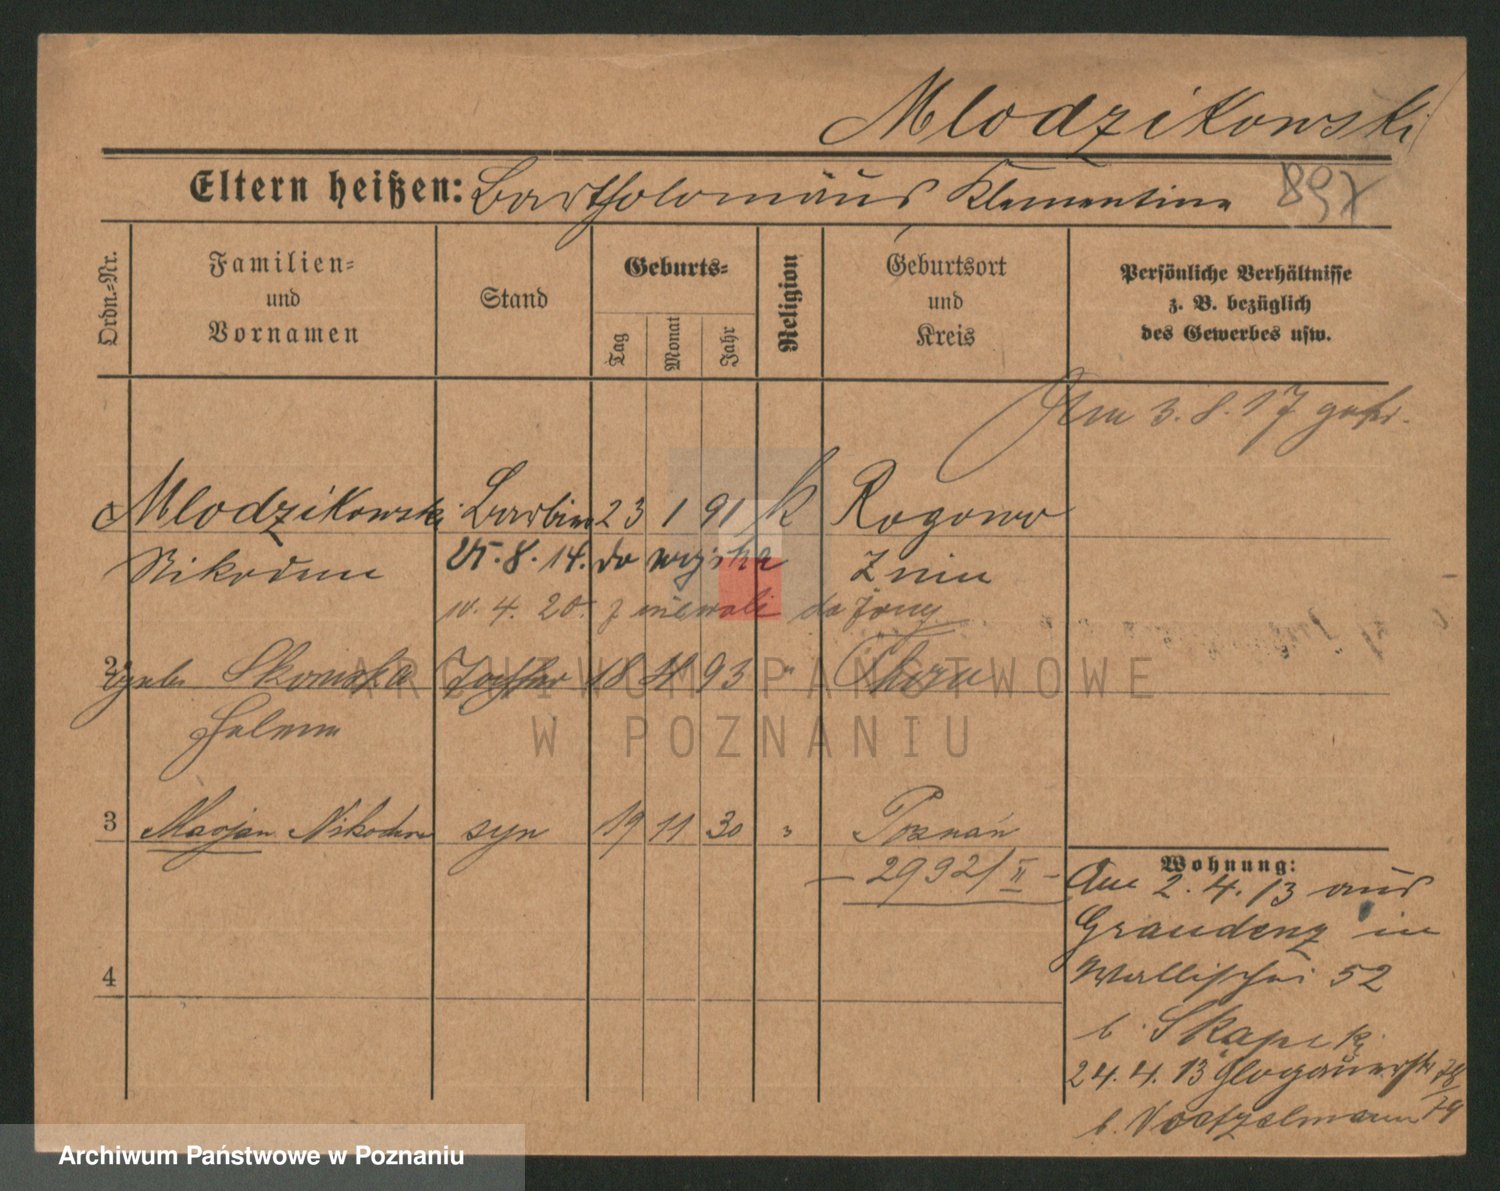 Mlodzikowski
Eltern heißen: Bartholomäus Klementine 897
Ordn.-Nr.
Familien-
und
Vornamen
Stand
Geburts-
Tag
Monat
Jahr
Religion
Geburtsort
und
Kreis
Persönliche Verhältnisse
z. B. bezüglich
des Gewerbes usw.
3.8.17
Mlodzikowski Barbier 23 1 91 k Rogowo
Nikodem 25.8.14. do wojska Znin
4.20. z niewoli do żony
2 Skowrońska 18 93 "
Helena
3 Marjan Nikodem syn 19 11 30 " Poznań
— 29921/II —
4
Wohnung:
Am 2.4.13 aus
Graudenz in
Wallischei 52
b. Skapski
24.4.13 Glogauerstr 78/79
b.
ARCHIWUM PAŃSTWOWE
W POZNANIU
Archiwum Państwowe w Poznaniu